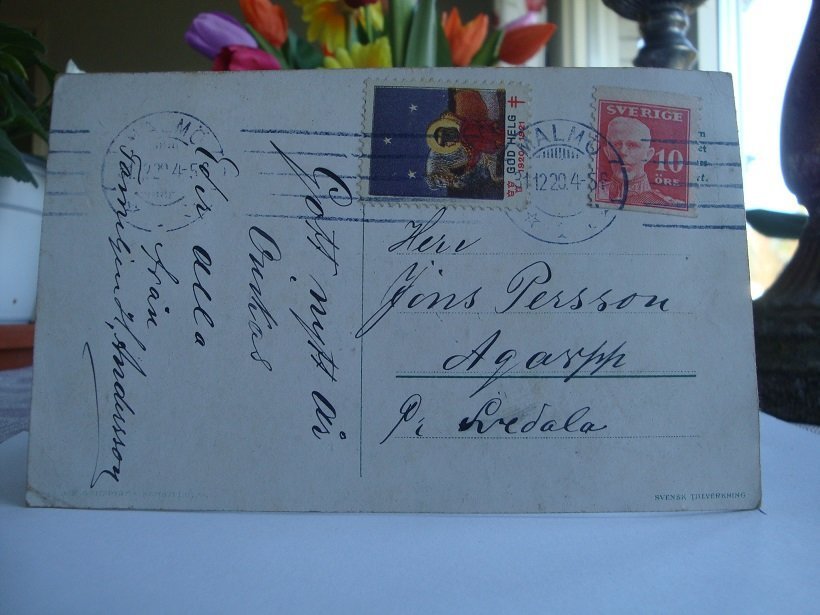 Gott nytt år
Önskas
Eder alla
från
Familjen Andersson
GOD HELG
1920-1921
SVERIGE
10
ÖRE
MALMÖ
31.12.20.4-5
Herr
Jöns Persson
Agarpp
Pr Svedala
SVENSK TILLVERKNING